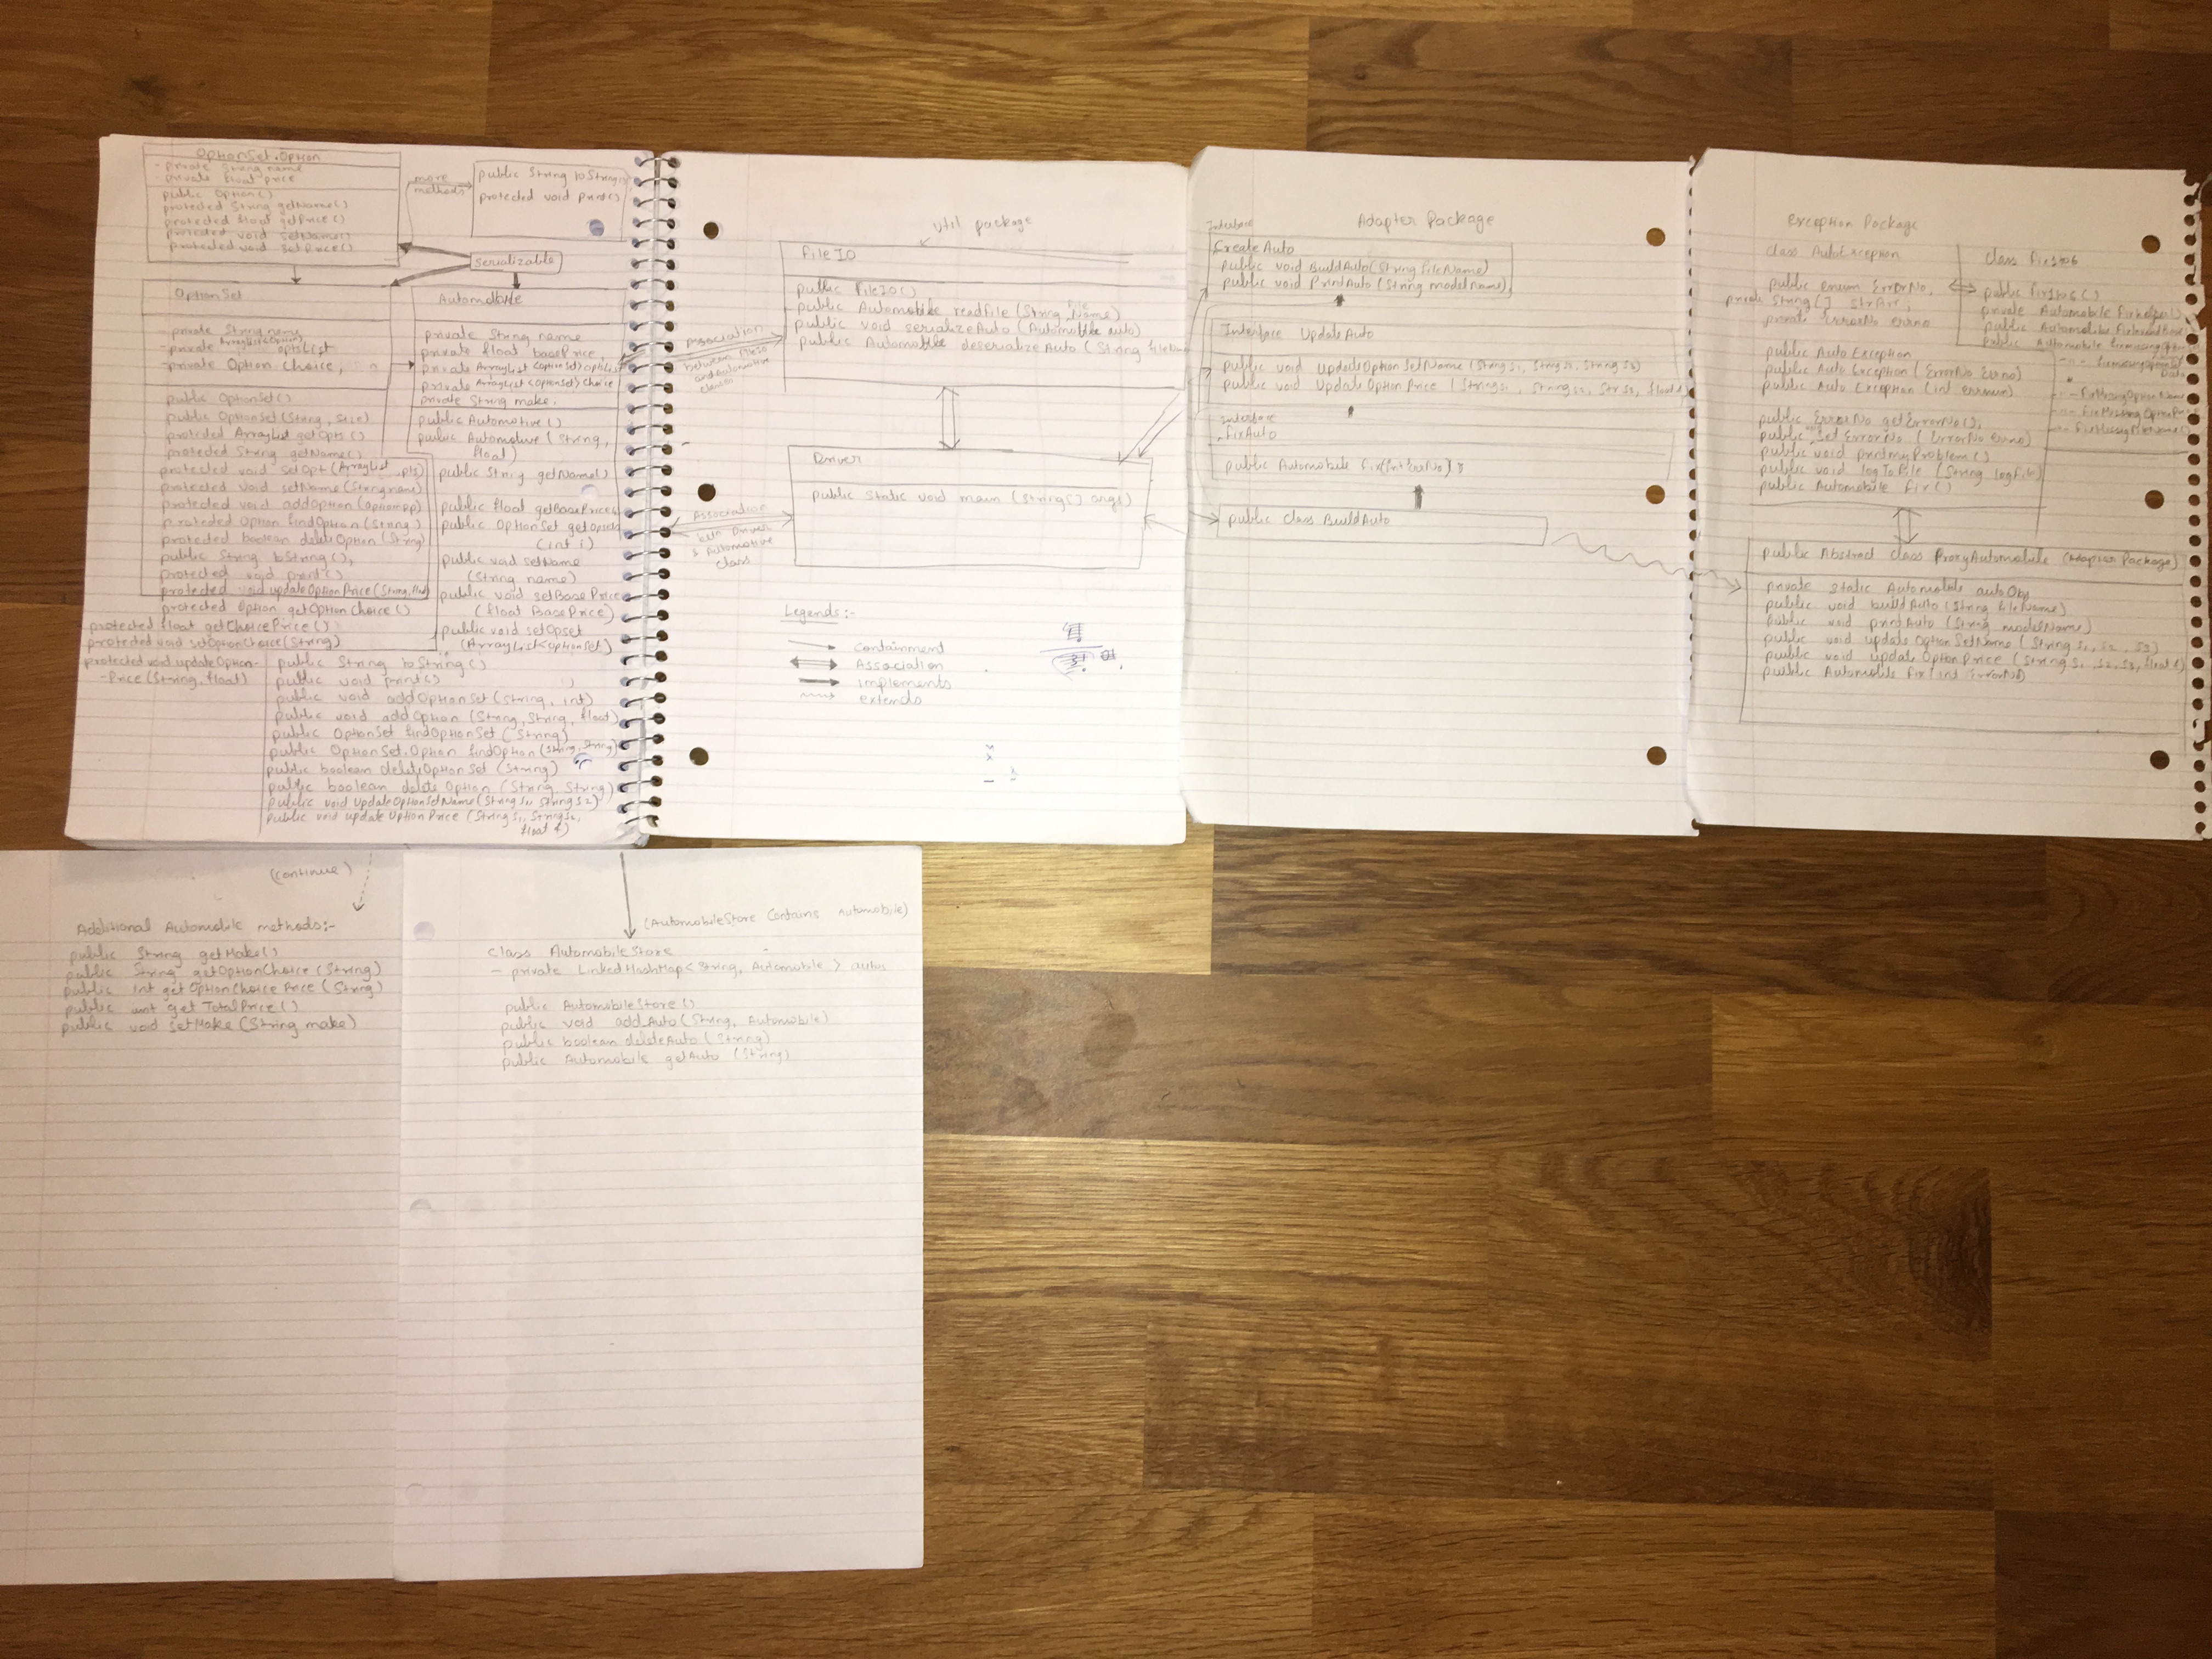 OptionSet.Option
- private String name
- private float price
public Option()
protected String getName()
protected float getPrice()
protected void setName()
protected void setPrice()
more methods
public String toString()
protected void print()
serializable
OptionSet
- private String name
- private ArrayList<Option> optsList
- private Option choice,
public OptionSet()
public OptionSet(String, size)
protected ArrayList getOpts()
protected String getName()
protected void setOpt(ArrayList opts)
protected void setName(String name)
protected void addOption(Option op)
protected Option findOption(String)
protected boolean deleteOption(String)
public String toString(),
protected void print()
protected void updateOptionPrice(String, float)
protected Option getOptionChoice()
protected float getChoicePrice()
protected void setOptionChoice(String)
protected void updateOption-
-Price(String, float)
Automobile
private String name
private float basePrice,
private ArrayList<OptionSet>
private ArrayList<OptionSet> choice
private String make;
public Automotive()
public Automotive(String,
float)
public String getName()
public float getBasePrice
public OptionSet getOpset
(int i)
public void setName
(String name)
public void setBasePrice
(float BasePrice)
public void setOpset
(ArrayList<optionSet)
public String toString()
public void print()
public void addOptionSet(String, int)
public void addOption(String, String, float)
public OptionSet findOptionSet(String)
public OptionSet.Option findOption(String, String)
public boolean deleteOptionSet(String)
public boolean deleteOption(String, String)
public void updateOptionSetName(String s1, String s2)
public void updateOptionPrice(String s1, String s2,
float f)
util package
FileIO
public FileIO()
public Automobile readFile(String FileName)
public void serializeAuto(Automobile auto)
public Automobile deserializeAuto(String fileName
Association
between FileIO
and Automotive
classes
Driver
public static void main(String[] args)
Association
betn Driver
& Automotive
class
Legends:-
Containment
Association
implements
extends
Adapter Package
Interface
CreateAuto
public void BuildAuto(String fileName)
public void PrintAuto(String modelName),
Interface UpdateAuto
public void updateOptionSetName(String s1, String s2, String s3)
public void updateOptionPrice(String s1, String s2, Str s3, float f
interface
fixAuto
public Automobile fix(int errNo);
public class BuildAuto
Exception Package
class AutoException
public enum ErrorNo,
private String[] strArr,
private ErrorNo errno
public AutoException
public AutoException(ErrorNo errno)
public AutoException(int errnum)
public ErrorNo getErrorNo(),
public set ErrorNo(ErrorNo errno)
public void printmyProblem()
public void logToFile(String logFile)
public Automobile fix()
class Fix1to6
public Fix1to6()
private Automobile
public Automobile
public Automobile
Data
- - FixMissingOptionName
- - FixMissingOptionPrice
public Abstract class ProxyAutomobile (Adapter Package)
private static Automobile autoObj
public void buildAuto(String fileName)
public void printAuto(String modelName)
public void updateOptionSetName(String s1, s2, s3)
public void updateOptionPrice(String s1, s2, s3, float f)
public Automobile fix(int errorNo)
(continue)
Additional Automobile methods:-
public String getMake()
public String getOptionChoice(String)
public int getOptionChoice Price(String)
public int get TotalPrice()
public void setMake(String make)
(AutomobileStore Contains Automobile)
class AutomobileStore
- private LinkedHashMap<String, Automobile> autos
public AutomobileStore()
public void addAuto(String, Automobile)
public boolean deleteAuto(String)
public Automobile getAuto(String)